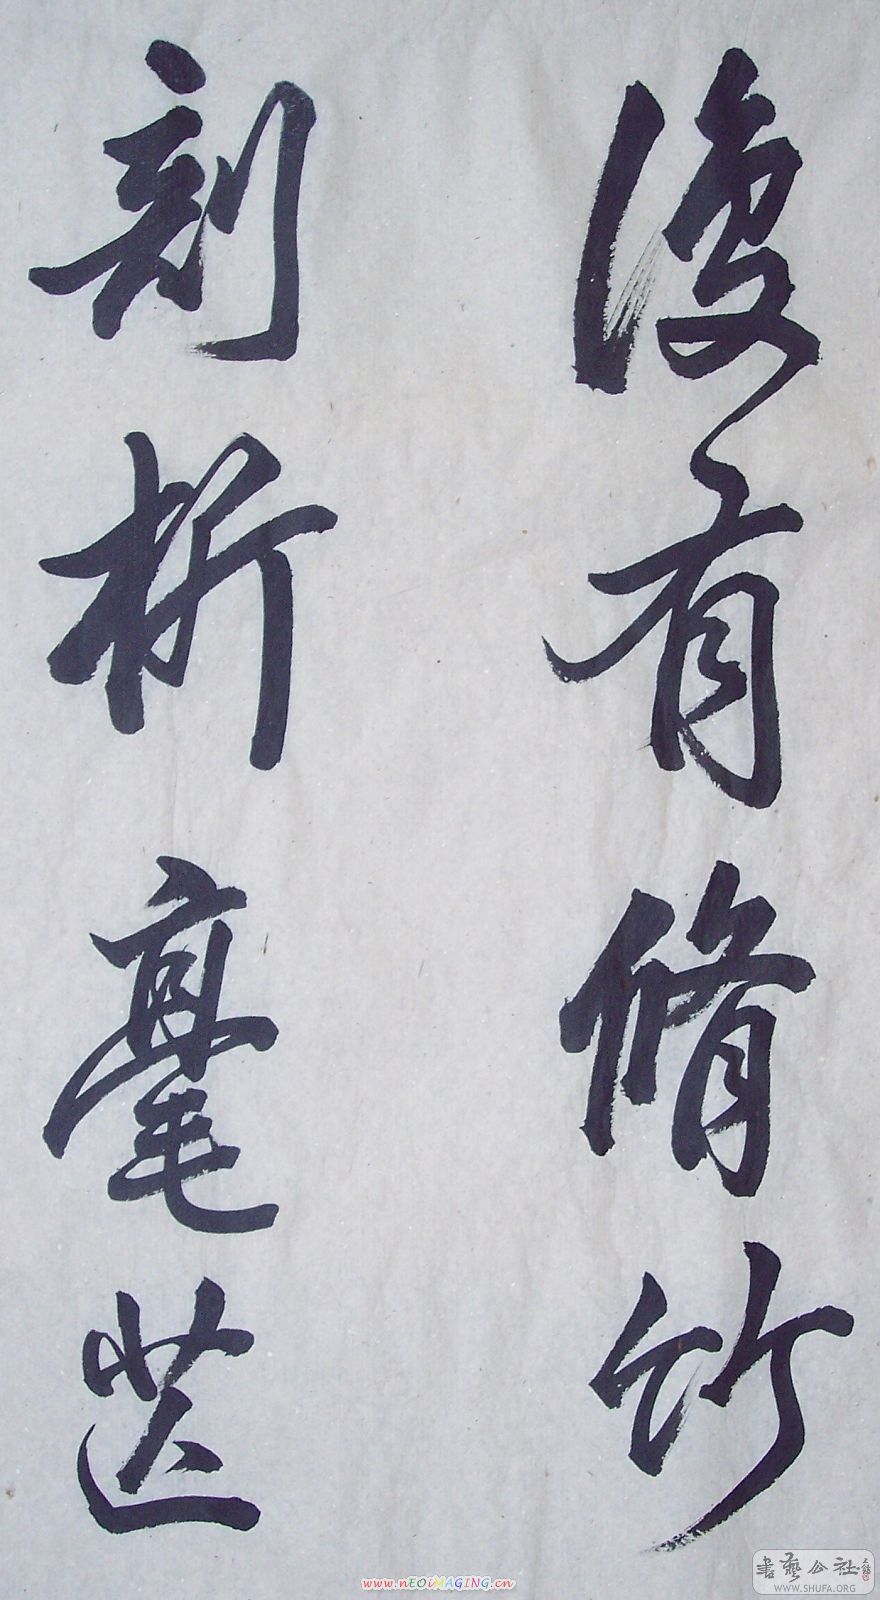 復有脩竹
刻析毫芒
www.nEOiMAGING.cn
書藝公社
WWW.SHUFA.ORG